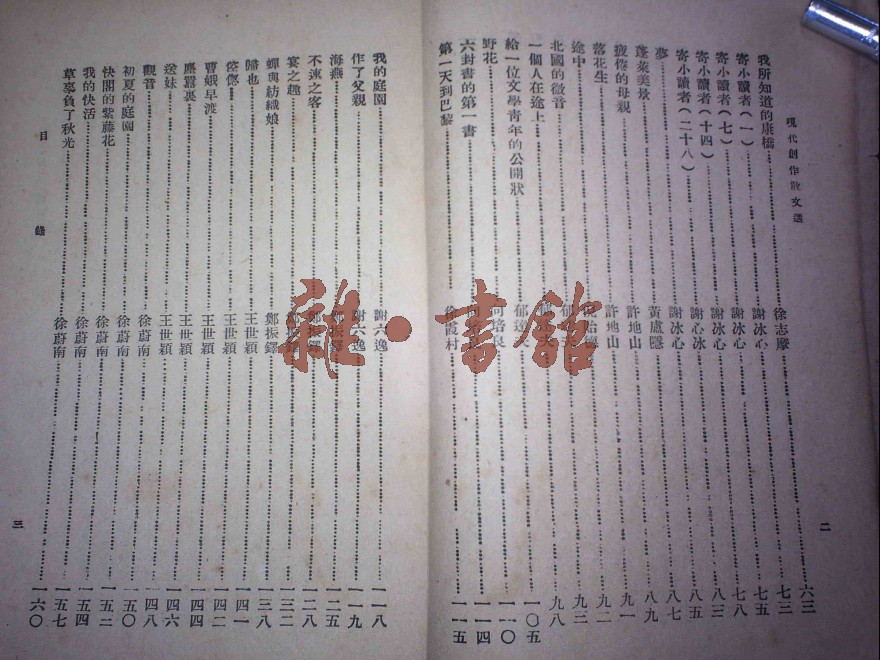 現代創作散文選
我所知道的康橋 徐志摩 六三
寄小讀者(一) 謝冰心 七三
寄小讀者(七) 謝冰心 七五
寄小讀者(十四) 謝冰心 七八
寄小讀者(二十八) 謝心冰 八三
夢 謝冰心
蓬萊美景 黃盧隱 八七
疲倦的母親 許地山 八九
落花生 許地山 九一
途中 九二
北國的微音 郁 九三
一個人在途上 九八
給一位文學青年的公開狀 郁 一〇五
野花 向培良 一一〇
六封書的第一書 一一四
第一天到巴黎 徐霞村 一一五
二
我的庭園 謝六逸 一一八
作了父親 謝六逸 一一九
海燕 鄭振鐸 一二五
不速之客 鄭振鐸 一二八
宴之趣 一三二
蟬與紡織娘 鄭振鐸 一三八
歸也 王世穎 一四一
倥傯 王世穎 一四二
曹娥早渡 王世穎 一四四
塵囂裏 王世穎 一四六
送妹 王世穎 一四八
觀音 徐蔚南 一五〇
初夏的庭園 徐蔚南 一五二
快閣的紫藤花 徐蔚南 一五四
我的快活 徐蔚南 一五七
辜負了秋光 徐蔚南 一六〇
目錄
三
雜·書館